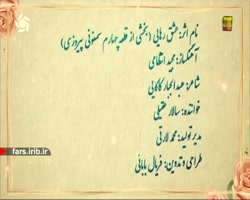 نام اثر: عشق رهایی (بخشی از قطعه چهارم سمفونی پیروزی)
آهنگساز: مجید انتظامی
شاعر: عبدالجبار کاکایی
خواننده: سالار عقیلی
مدیر تولید: محمد لارتی
طراحی و تدوین: فریال بابائی
fars.irib.ir